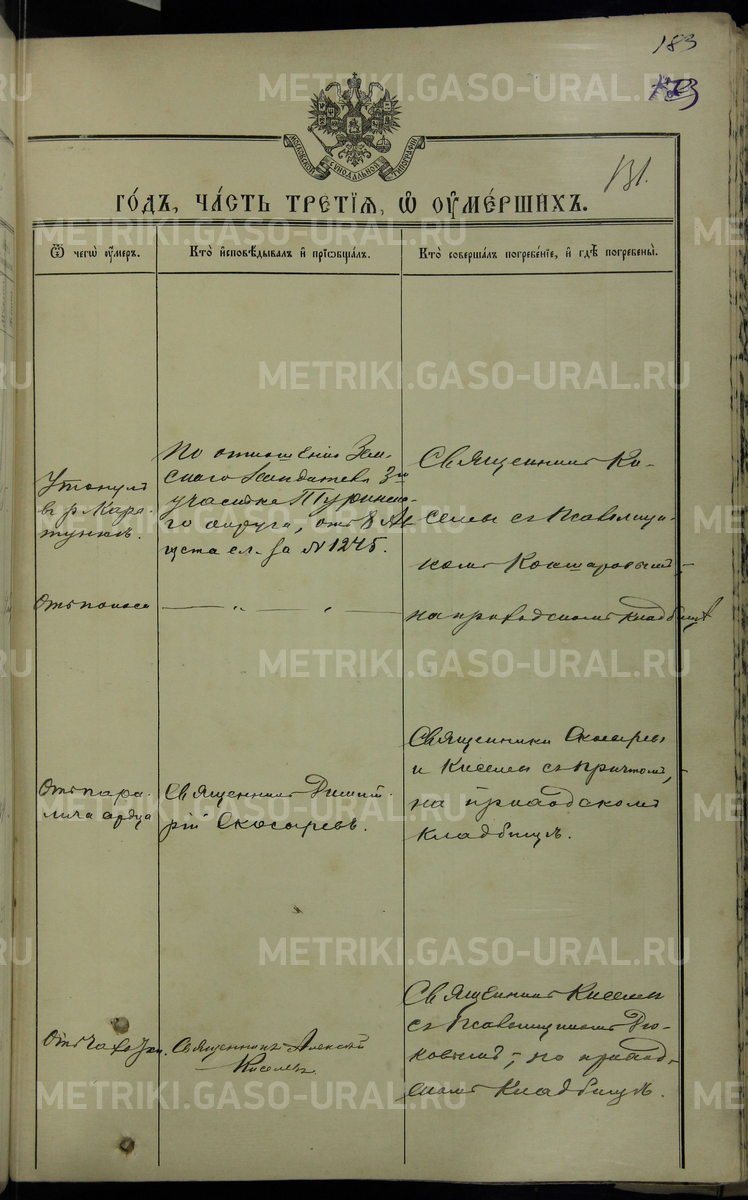 183
173
131.
МОСКОВСКОЙ СѴНОДАЛЬНОЙ ТИПОГРАФІИ
ГО́ДЪ, ЧА́СТЬ ТРЕТІѦ, Ѡ ОУМЕ́РШИХЪ.
Ѿ чегѡ̀ ᲂу҆́меръ.
Кто̀ и҆сповѣ́дывалъ и҆ прїѡбща́лъ.
Кто̀ соверша́лъ погребе́нїе, и҆ гдѣ̀ погребены̀.
Утонулъ
въ р. Кара-
тункѣ.
По отношенію Зем-
скаго Засѣдателя 3го
участка Туринска-
го округа, отъ 8 Ав
густа с.г. за № 1245.
Священникъ Ки-
селевъ съ Псаломщи-
комъ Кокшаровымъ,-
на приходскомъ кладбищѣ
Отъ поноса
— „ — „ —
Отъ пара-
лича сердца
Священникъ Димит-
рій Скосыревъ.
Священники Скосыревъ
и Киселевъ съ причтомъ,-
на приходскомъ
кладбищѣ.
Отъ чахотки.
Священникъ Алексѣй
Киселевъ.
Священникъ Киселевъ
съ Псаломщикомъ
ковымъ,- на приход-
скомъ кладбищѣ.
METRIKI.GASO-URAL.RU